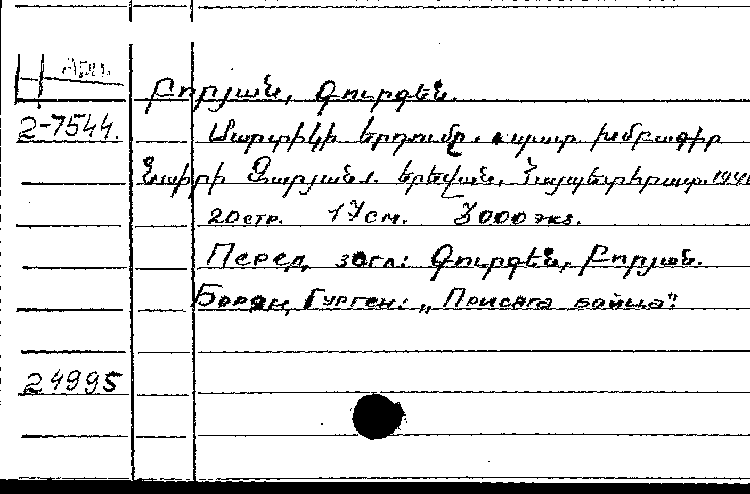 Արմ.
Բորյան, Գուրգեն.
2-7544. Մարտիկի երդումը. պատ. խմբագիր
Նաիրի Զարյան. Երեվան, Հայպետհրատ. 194
20 стр. 17 см. 3000 экз.
Перед загл: Գուրգեն, Բորյան.
Борян, Гурген: „Присяга бойца":
24995